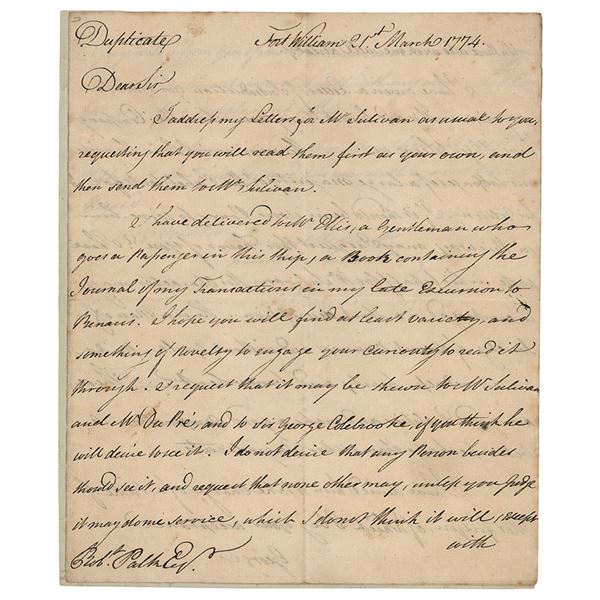 Duplicate Fort William 21.st March 1774.
Dear Sir
I address my Letters for Mr. Sulivan as usual to you,
requesting that you will read them first as your own, and
then send them to Mr. Sulivan.
I have delivered to Mr. Ellis, a Gentleman who
goes a Passenger in this ship, a Book containing the
Journal of my Transactions in my late Excursion to
Benaris. I hope you will find at least variety, and
something of Novelty to engage your curiosity to read it
through. I request that it may be shewn to Mr. Sulivan
and Mr. Du Pré, and to Sir George Colebrooke, if you think he
will desire to see it. I do not desire that any Person besides
should see it, and request that none other may, unless you judge
it may do me service, which I do not think it will, except
with
Robt. Palk Esqr.